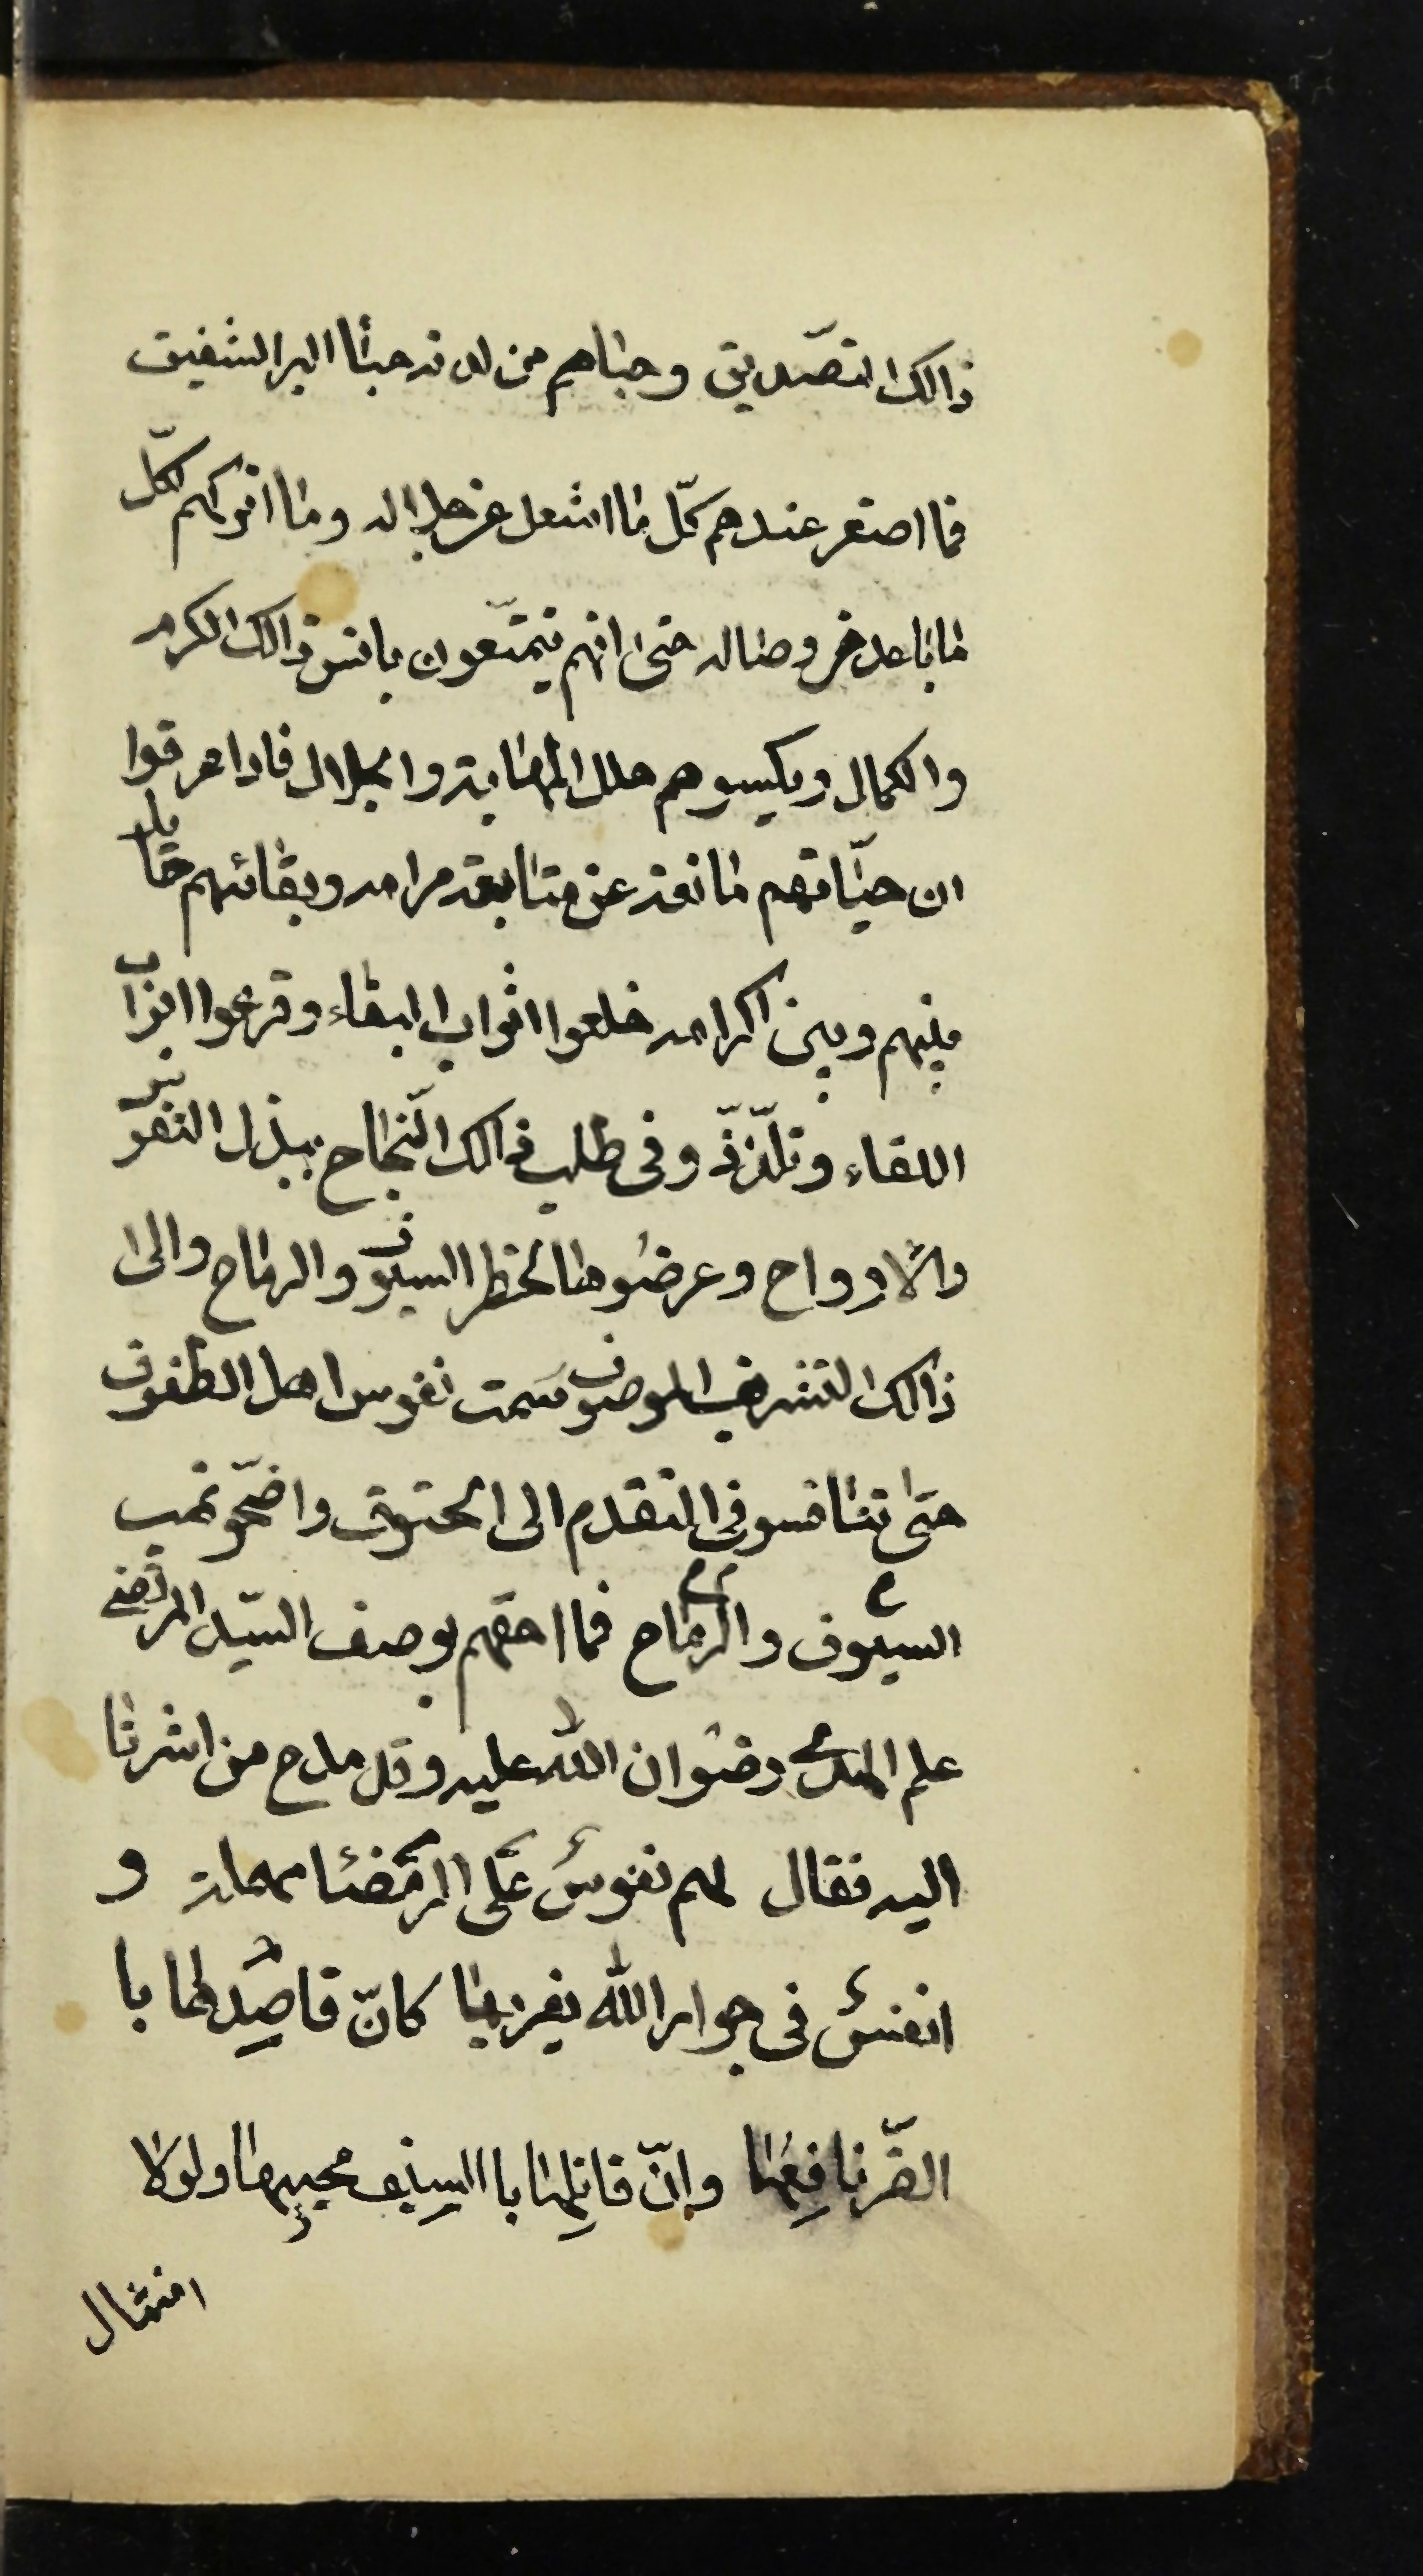 ذالك التصّديق وحباهم من لدنه حبأ البر الشفيق
فما اصغر عندهم كلّ ما اشغل عن جلاله وما اتركهم لكلّ
ما باعد من وصاله حتى انهم يتمتّعون بانس ذالك الكرم
والكمال ويكسوهم حلل المهابة والجلال فاذا عرفوا
ان حيّاتهم مانعة عن متابعة مرامه وبقائهم حايل
بينهم وبين اكرامه خلعوا اثواب البقاء وقرعوا ابواب
اللقاء وتلّذّذ وفى طلب ذالك النّجاح ببذل النفوّس
والأارواح وعرضوها لخطر السيوف والرماح والى
ذالك التشريف الموصوف سمت نفوس اهل الطفوف
حتى تنافسو فى التقدم الى الحتوف واضحّو نهب
السيوف والرماح فما احقهم بوصف السيّد المرتضى
علم الهدى رضوان الله عليه وقد مدح من اشرنا
اليه فقال لهم نفوسٌ على الرمضا مهملة و
انفسٌ فى جوار الله يقريها كانّ قاصِدها با
الضّر نافِعُها وإنّ قاتِلها باالسِيَف محييها ولولا
امتثال